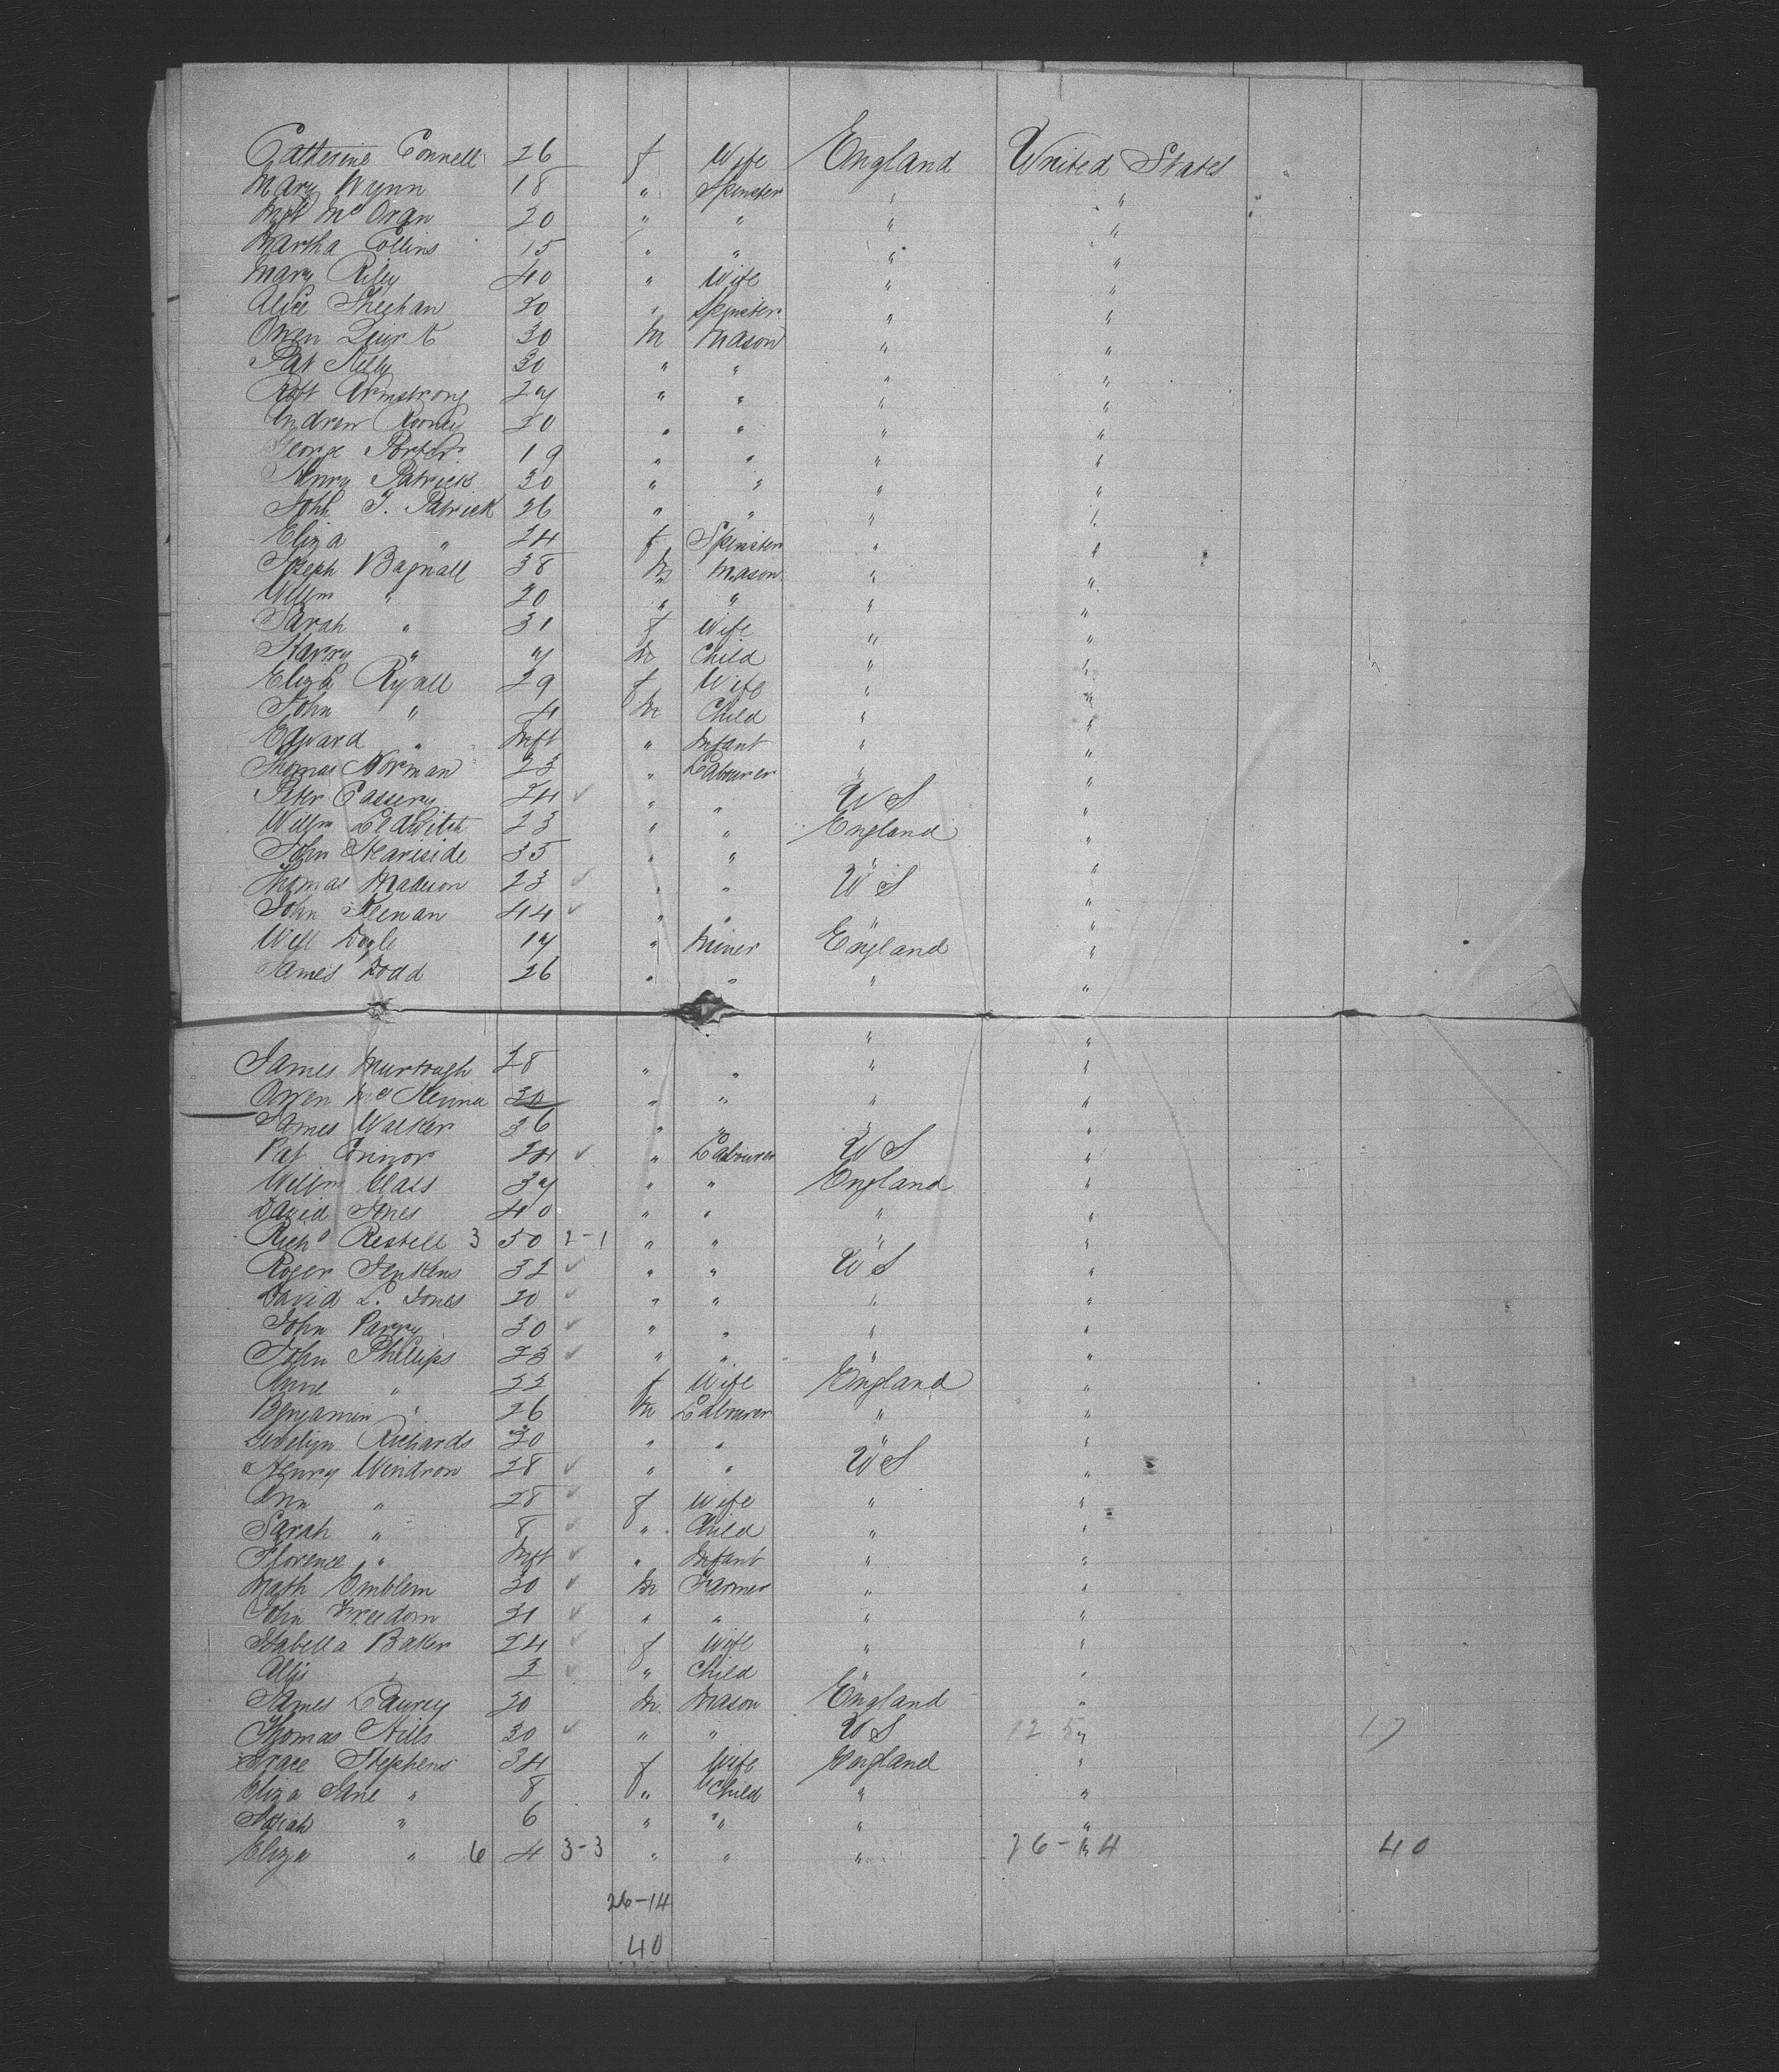 Catherine Connell 26 f Wife England United States
Mary Wynn 18 " Spinster " "
McOran 20 " " " "
Martha Collins 15 " " " "
Mary Riley 40 " Wife " "
Alice Sheehan 20 " Spinster " "
Owen Quirk 30 m Mason " "
Pat Kelly 30 " " " "
Robt Armstrong 27 " " " "
Andrew Rooney 20 " " " "
George Porter 19 " " " "
Henry Patrick 30 " " " "
John T. Patrick 26 " " " "
Eliza " 24 f Spinster " "
Joseph Bagnall 38 m Mason " "
Willm " 20 " " " "
Sarah " 31 f Wife " "
Harry " 7 m Child " "
Eliza Ryall 29 f Wife " "
John " 4 m Child " "
Edward " Inft " Infant " "
Thomas Norman 23 " Labourer " "
Peter Cassery 24 ✓ " " U S "
Willm 23 " " England "
John 35 " " " "
Thomas Madison 23 ✓ " " U S "
John Keenan 44 ✓ " " " "
Will Doyle 17 " Miner England "
James Dodd 26 " " " "
" "
James Murtough 28 " " " "
Owen McKenna 30 " " " "
James Walker 36 " " " "
Pat Connor 24 ✓ " Labourer U S "
Willm Class 37 " " England "
David Jones 40 " " " "
Richd Restell 3 50 2-1 " " " "
Roger Jenkins 32 ✓ " " U S "
David L. Jones 20 ✓ " " " "
John Parry 30 ✓ " " " "
John Phillips 23 ✓ " " " "
Anne " 22 f Wife England "
Benjamin " 26 m Labourer " "
Richards 30 " " " "
Henry Windron 28 ✓ " " U S "
Ann " 28 ✓ f Wife " "
Sarah " 8 ✓ " Child " "
Florence " Inft ✓ " Infant " "
Math Emblem 30 ✓ m Farmer " "
John Freedom 21 ✓ " " " "
Isabella Baker 24 ✓ f Wife " "
" 2 ✓ " Child " "
James 20 m Mason England "
Thomas Hills 30 ✓ " " U S 12 5 " 17
Grace Stephens 34 f Wife England "
Eliza Jane " 8 " Child " "
" 6 " " " "
Eliza " 6 4 3-3 " " " 26-14 40
26-14
40